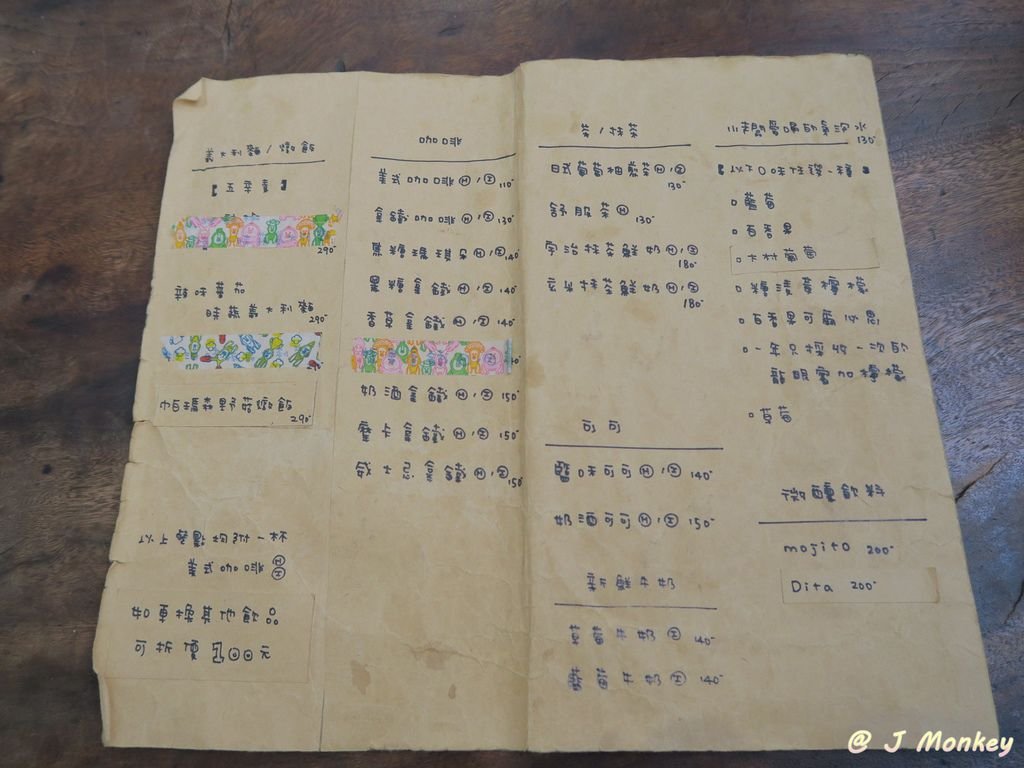 義大利麵/燉飯
【五辛素】
290
辣味蕃茄
時蔬義大利麵
290
帕瑪森野菇燉飯
290
以上餐點均附一杯
美式咖啡Ⓗ
Ⓘ
如更換其他飲品
可折價100元
咖啡
美式咖啡Ⓗ/Ⓘ 110
拿鐵咖啡Ⓗ/Ⓘ 130
黑糖瑪琪朵Ⓗ/Ⓘ 140
黑糖拿鐵Ⓗ/Ⓘ 140
香草拿鐵Ⓗ/Ⓘ 140
奶酒拿鐵Ⓗ/Ⓘ 150
摩卡拿鐵Ⓗ/Ⓘ 150
威士忌拿鐵Ⓗ/Ⓘ 150
茶/抹茶
日式葡萄柚煎茶Ⓗ/Ⓘ
130
舒服茶Ⓗ
130
宇治抹茶鮮奶Ⓗ/Ⓘ
180
玄米抹茶鮮奶Ⓗ/Ⓘ
180
可可
可可Ⓗ/Ⓘ 140
奶酒可可Ⓗ/Ⓘ 150
新鮮牛奶
牛奶Ⓗ 140
牛奶Ⓗ 140
氣泡水
130
【以下口味任選一種】
□藍莓
□百香果
□卡林葡萄
□糖漬黃檸檬
□百香果可爾必思
□一年只採收一次的
龍眼蜜加檸檬
□草莓
微醺飲料
mojito 200
Dita 200
@ J Monkey